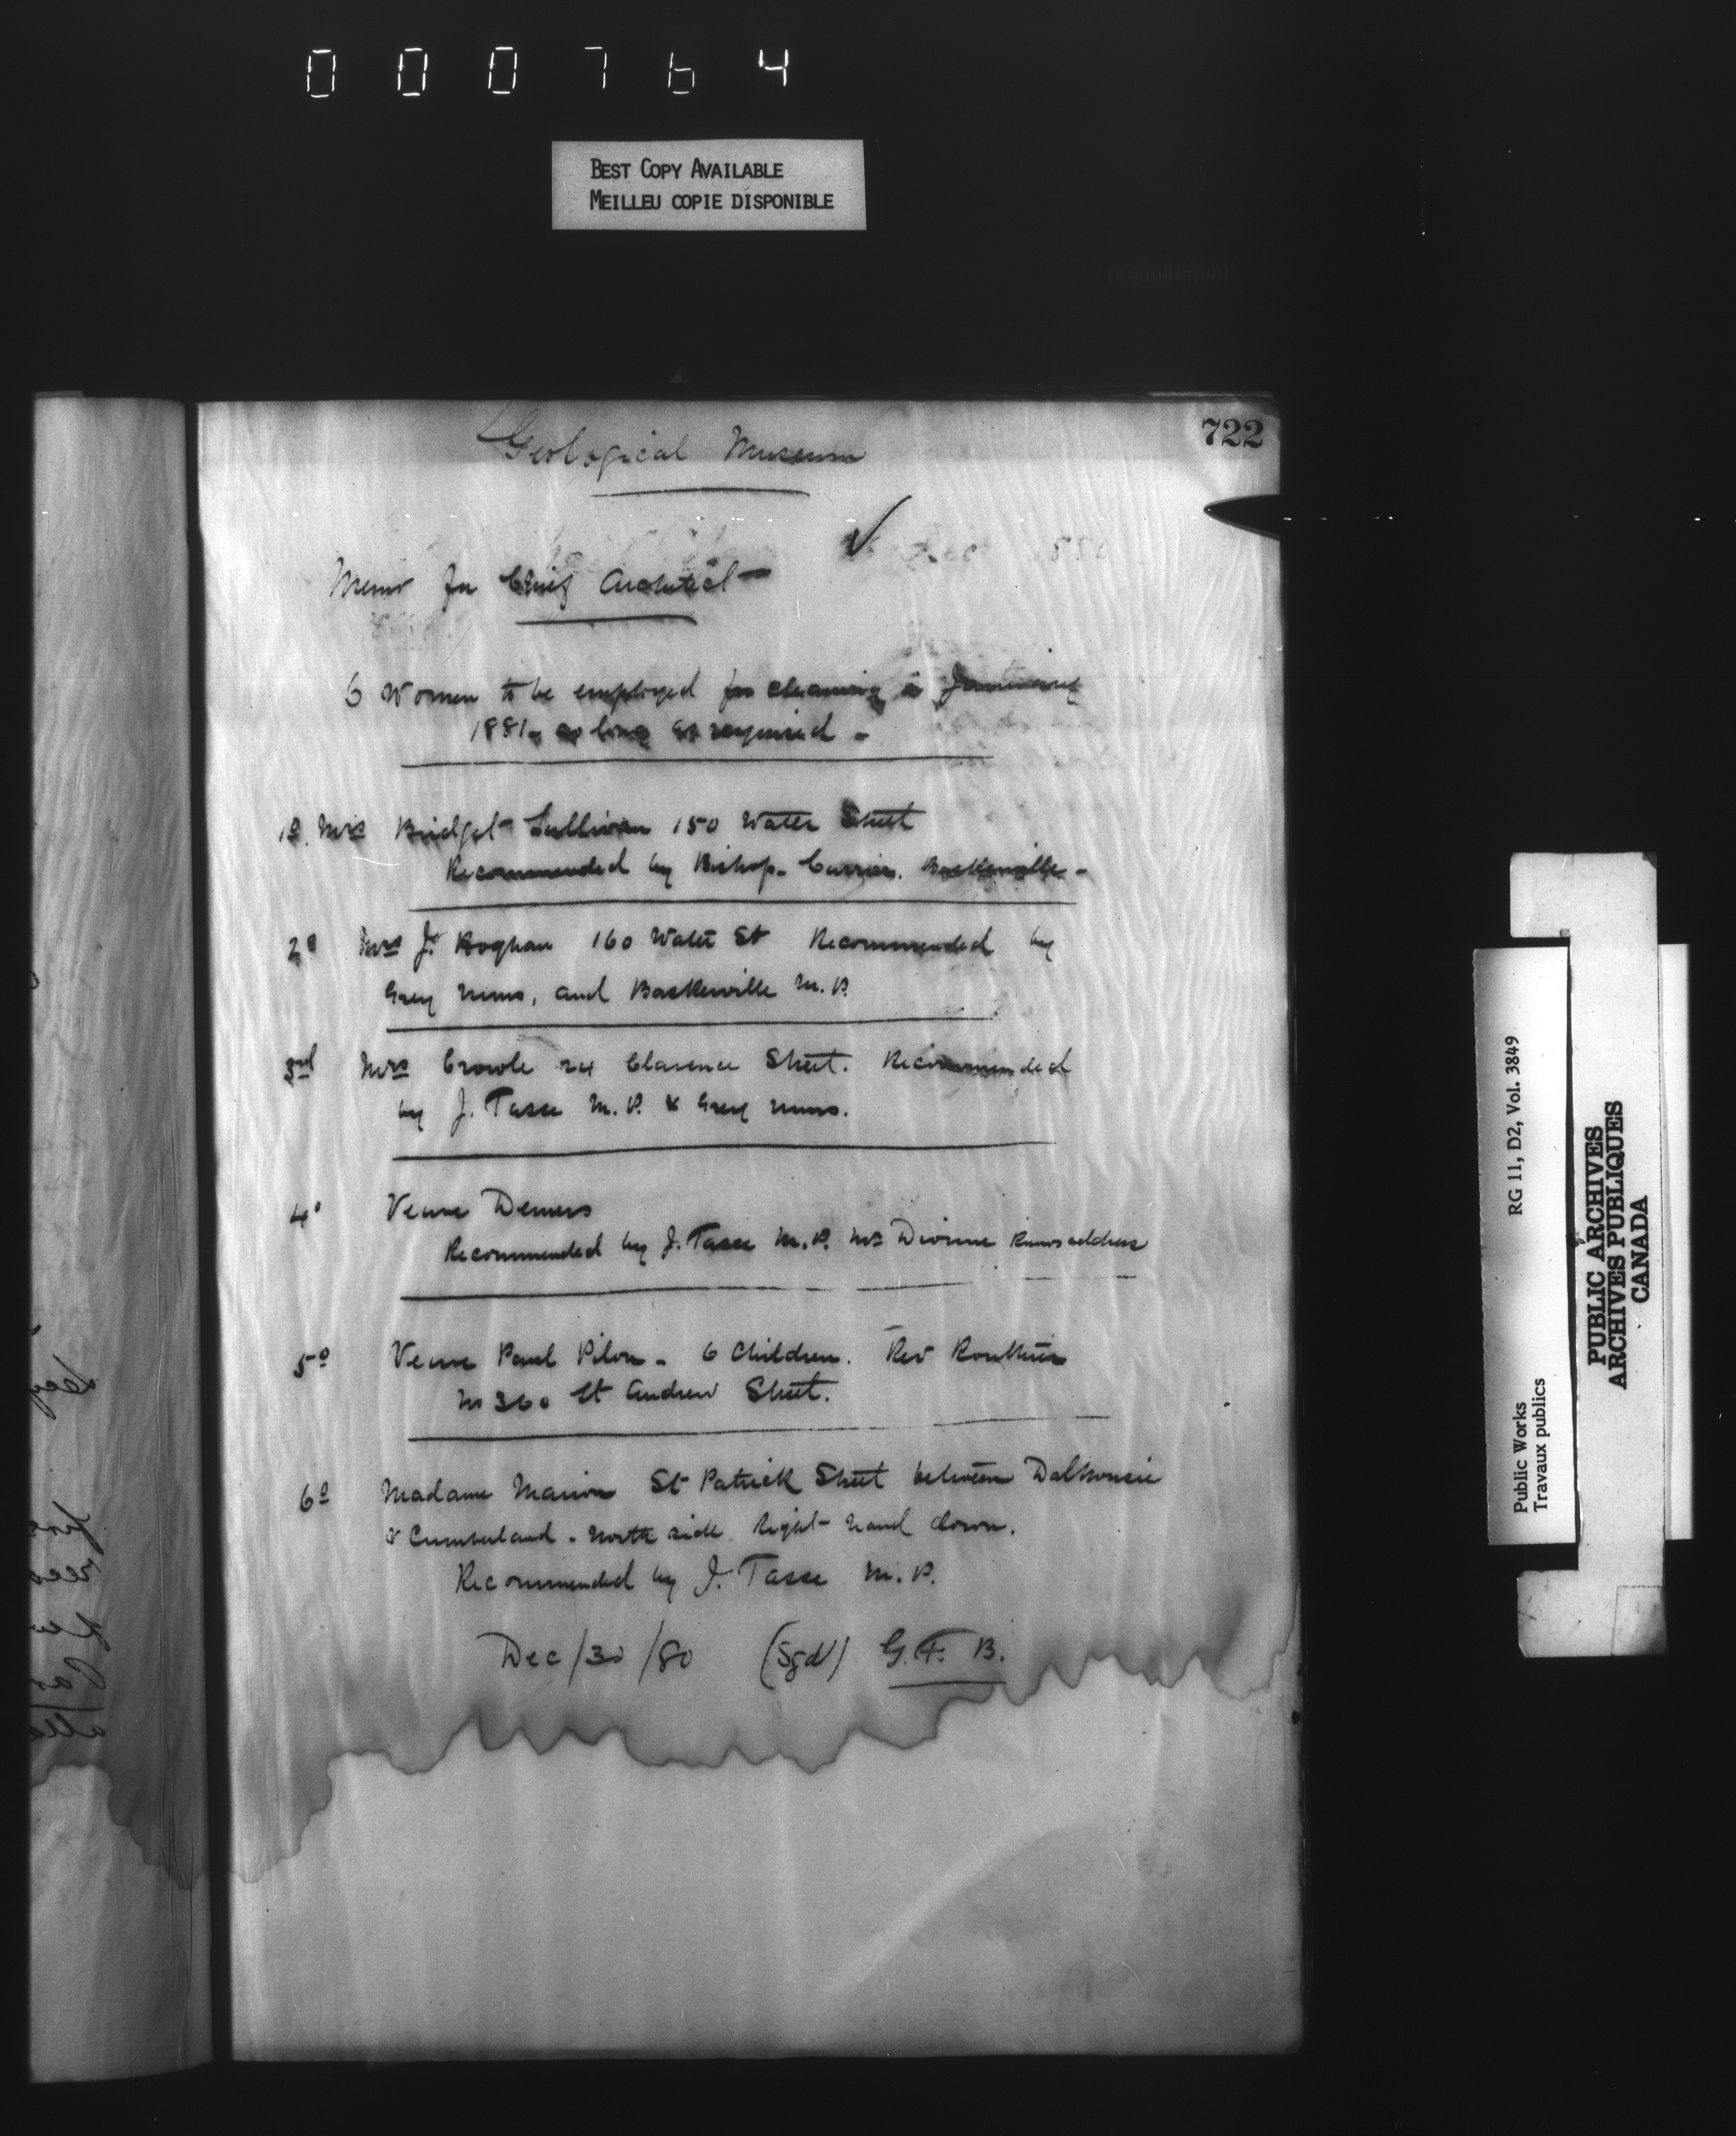 000764
BEST COPY AVAILABLE
MEILLEU COPIE DISPONIBLE
722
Geological Museum
Memo for Chief Architect
6 Women to be employed for cleaning in January
1881 - as long as required -
1o. Mrs Bridget Sullivan 150 Water Street
Recommended by Bishop - Currier. Baskerville -
2o Mrs J. 160 Water St Recommended by
Grey nuns, and Baskerville M.P.
3rd Mrs Crowle 24 Clarence Street. Recommended
by J. Tasse M.P. & Grey nuns.
4o Veuve Demers
Recommended by J. Tasse M.P. Mrs address
5o Veuve Paul Pilon - 6 Children. Rev
No 360 St Andrew Street.
6o Madame Marion St Patrick Street between Dalhousie
& Cumberland - North side Right hand down.
Recommended by J. Tasse M.P.
Dec/30/80 (Sgd) G.F.B.
Public Works
Travaux publics
RG 11, D2, Vol. 3849
PUBLIC ARCHIVES
ARCHIVES PUBLIQUES
CANADA